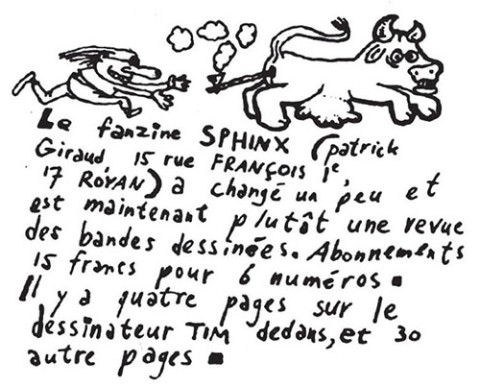 Le fanzine SPHINX (patrick
Giraud, 15 rue FRANÇOIS 1e,
17 ROYAN) a changé un peu et
est maintenant plutôt une revue
des bandes dessinées. Abonnements
15 francs pour 6 numéros.
Il y a quatre pages sur le
dessinateur TIM dedans, et 30
autre pages.